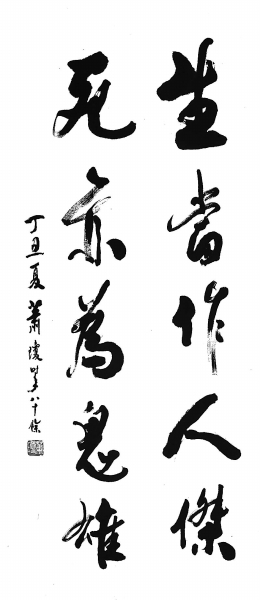 生當作人傑
死亦為鬼雄
丁丑夏蕭瓊时年八十餘